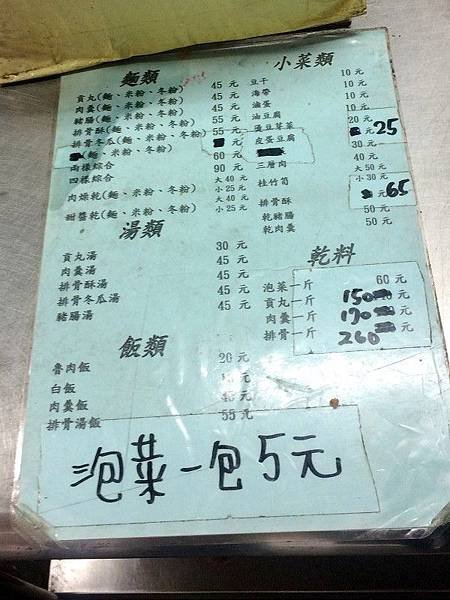 麵類
貢丸(麵、米粉、冬粉) 45 元
肉羹(麵、米粉、冬粉) 45 元
豬腸(麵、米粉、冬粉) 45 元
排骨酥(麵、米粉、冬粉) 55 元
排骨冬瓜(麵、米粉、冬粉) 55 元
麵、米粉、冬粉) 元
兩樣綜合 60 元
四樣綜合 90 元
肉燥乾(麵、米粉、冬粉) 大40元 小25元
甜醬乾(麵、米粉、冬粉) 大40元 小25元
湯類
貢丸湯 30 元
肉羹湯 45 元
排骨酥湯 45 元
排骨冬瓜湯 45 元
豬腸湯 45 元
飯類
魯肉飯 20 元
白飯 元
肉羹飯 45 元
排骨湯飯 55 元
小菜類
豆干 10 元
海帶 10 元
滷蛋 10 元
油豆腐 10 元
豆芽菜 20 元
皮蛋豆腐 元 25
30 元
三層肉 40 元
桂竹筍 大50元 小30元
排骨酥 元 65
乾豬腸 50 元
乾肉羹 50 元
乾料
泡菜一斤 60 元
貢丸一斤 150 元
肉羹一斤 170 元
排骨一斤 260 元
泡菜一包5元